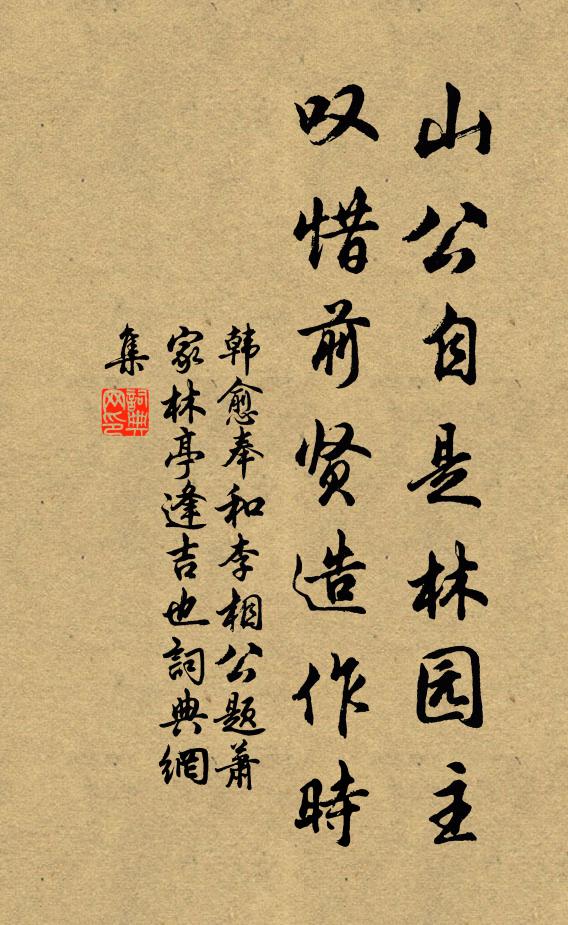 山公自是林园主
叹惜前贤造作时
韩愈奉和李相公题萧
家林亭逢吉也詞典網
集
詞典
网印